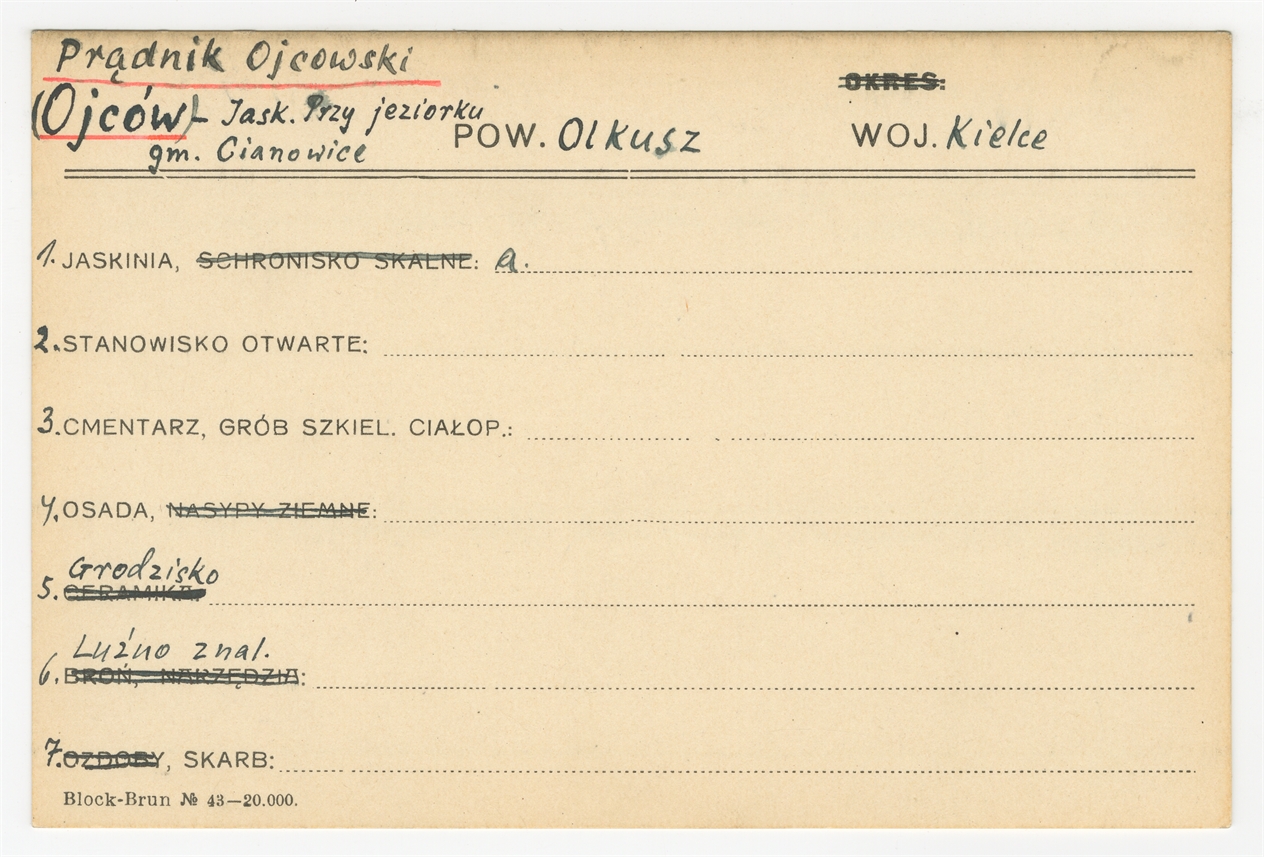 Prądnik Ojcowski
OKRES:
(Ojców) - Jask. Przy jeziorku
gm. Cianowice
POW. Olkusz
WOJ. Kielce
1. JASKINIA, SCHRONISKO SKALNE: a.
2. STANOWISKO OTWARTE:
3. CMENTARZ, GRÓB SZKIEL. CIAŁOP.:
4. OSADA, NASYPY ZIEMNE:
Grodzisko
5. CERAMIKA:
Luźno znal.
6. BROŃ, NARZĘDZIA:
7. OZDOBY, SKARB:
Block-Brun № 43—20.000.